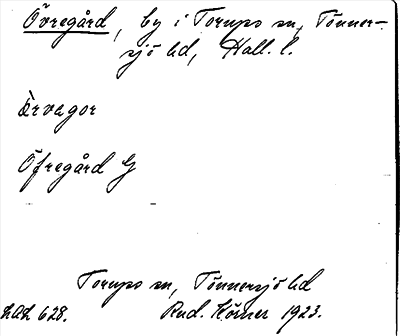 Övregård, by i Torups sn, Tönner-
sjö hd, Hall. l.
Örvagor
Öfregård G
Torups sn, Tönnersjö hd
LAL 628. Rud. Körner 1923.